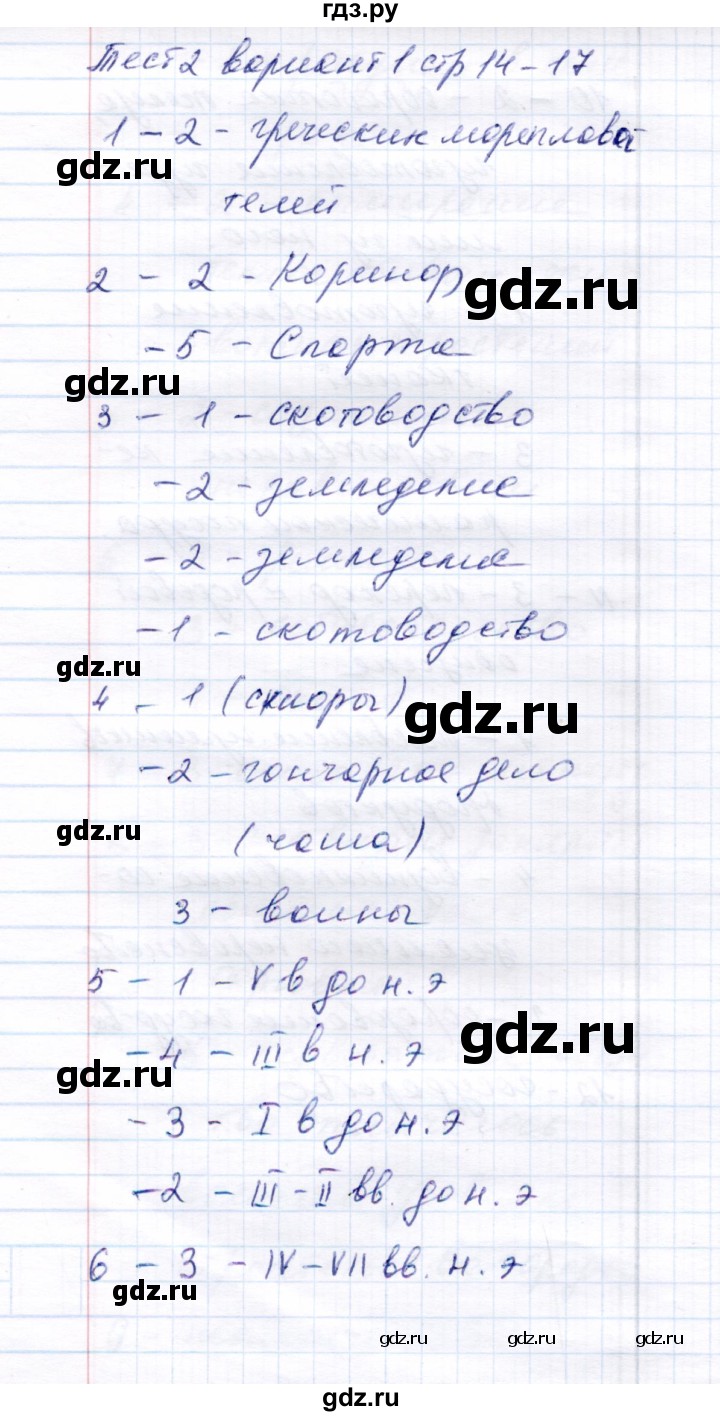 гдз.ру
Тест 2 вариант 1 стр 14-17
1 - 2 - греческих мореплава
gdz.ru
телей
2 - 2 - Коринф
gdz.ru
- 5 - Спарта
gdz.ru
3 - 1 - скотоводство
- 2 - земледелие
- 2 - земледелие
- 1 - скотоводство
gdz.ru
4 - 1 (скифы)
gdz.ru
- 2 - гончарное дело
gdz.ru
(чаша)
3 - воины
5 - 1 - V в до н. э
gdz.ru
- 4 - III в н. э
gdz.ru
- 3 - I в до н. э
- 2 - III - II вв. до н. э
6 - 3 - IV - VII вв. н. э
gdz.ru
gdz.ru gdz.ru gdz.ru
gdz.ru